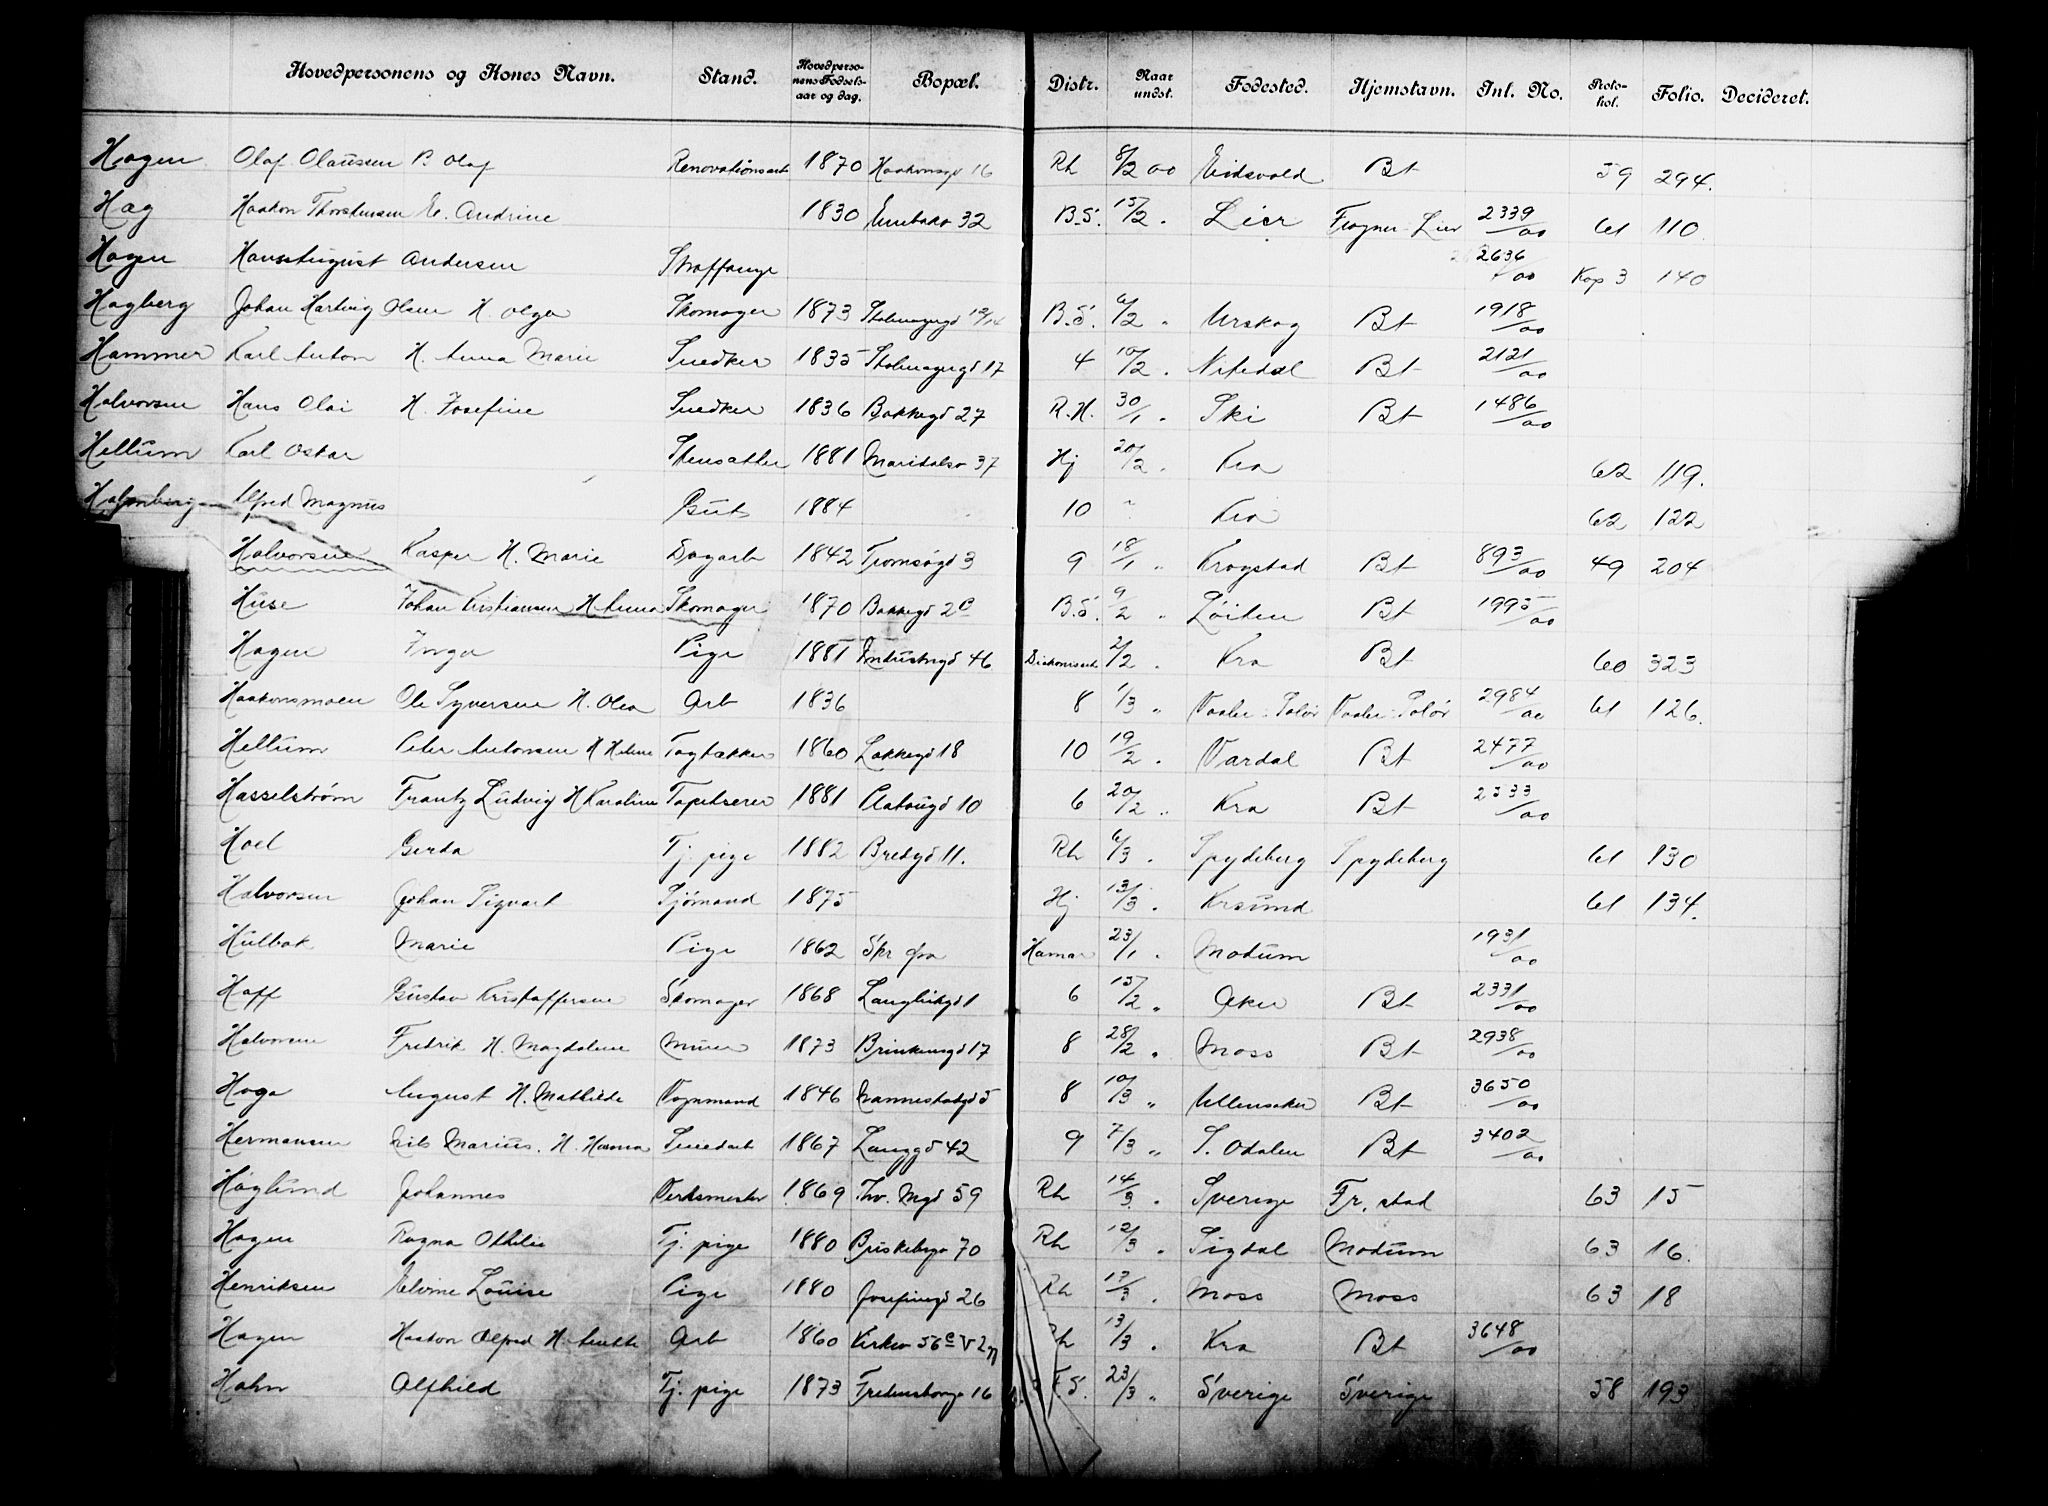 Hovedpersonens og Kones Navn. Stand. Hovedperso-nens Fødsels-aar og dag. Bopæl. Distr. Naar undst. Fødested. Hjemstavn. Inl. No. Proto-kol. Folio. Decideret.
Hagen Olaf Olaussen P. Olaf Renovationsarb 1870 Haakonsgd 16 Rh 8/2 00 Eidsvold Bt 59 294.
Hag Haakon Thorstensen E. Andrine 1830 Enebakv 32 B.S. 15/2 " Lier Frogner Lier 2339/00 61 110
Hagen Hans August Andersen Straffange 2636/00 Kop 3 140
Hagberg Johan Hartvig Olsen H. Olga Skomager 1873 Stolmagergd 12/14 B.S. 6/2 " Urskog Bt 1918/00
Hammer Karl Anton H. Anna Marie Snedker 1835 Stolmagergd 17 4 10/2 " Nitedal Bt 2121/00
Halvorsen Hans Olai H. Josefine Snedker 1836 Bakkegd 27 R.H. 30/1 " Ski Bt 1486/00
Hellum Karl Oskar 1881 Maridalsv 37 Hj 20/2 " Kra 62 119.
Alfred Magnus Gut 1884 10 " Kra 62 122
Halvorsen Kasper H. Marie Dagarb 1842 Tromsøgd 3 9 18/1 " Krogstad Bt 893/00 49 204
Huse Johan Kristiansen H. Anna Skomager 1870 Bakkegd 2c B.S. 9/2 " Løiten Bt 1995/00
Hagen Inga Pige 1881 Industrigd 46 Diakonisseh 2/2 " Kra Bt 60 323
Haakonsmoen Ole Syversen H. Olea Arb 1836 8 1/3 " Vaaler Solør Vaaler Solør 2984/00 61 126.
Hellum Peter Antonsen H Helene Tagtækker 1860 Lakkegd 18 10 19/2 " Vardal Bt 2477/00
Hasselstrøm Frantz Ludvig H Karoline Tapetserer 1881 Platougd 10 6 20/2 " Kra Bt 2333/00
Hoel Gerda Tj. pige 1882 Bredgd 11. Rh 6/3 " Spydeberg Spydeberg 61 130
Halvorsen Johan Sigvart Sjømand 1875 Hj 13/3 " Krsund 61 134.
Hulbak Marie Pige 1862 Skr fra Hamar 23/1 " Modum 1931/00
Hoff Gustav Kristoffersen Skomager 1868 Langlikgd 1 6 15/2 " Aker Bt 2331/00
Halvorsen Fredrik H. Magdalene Murer 1873 Brinkensgd 17 8 28/2 " Moss Bt 2938/00
Haga August H. Mathilde Vognmand 1846 Nannestadgd 5 8 10/3 " Ullensaker Bt 3650/00
Hermansen Nils Marius. H. Hanna Smedarb 1867 Langgd 42 9 7/3 " S. Odalen Bt 3402/00
Høglund Johannes Verksmester 1869 Thv. Mgd 59 Rh 14/3 " Sverige Fr. stad 63 15
Hagen Ragna Othilie Tj. pige 1880 Briskebyv 70 Rh 12/3 " Sigdal Modum 63 16.
Henriksen Elvine Louise Pige 1880 Josefinegd 26 Rh 17/3 " Moss Moss 63 18
Hagen Haakon Alfred H. Anette Arb 1860 Kirkev 56c V 2 Rh 13/3 " Kra Bt 3648/00
Hahn Alfhild Tj. pige 1873 Fredensborgv 16 F.S. 23/3 " Sverige Sverige 58 193